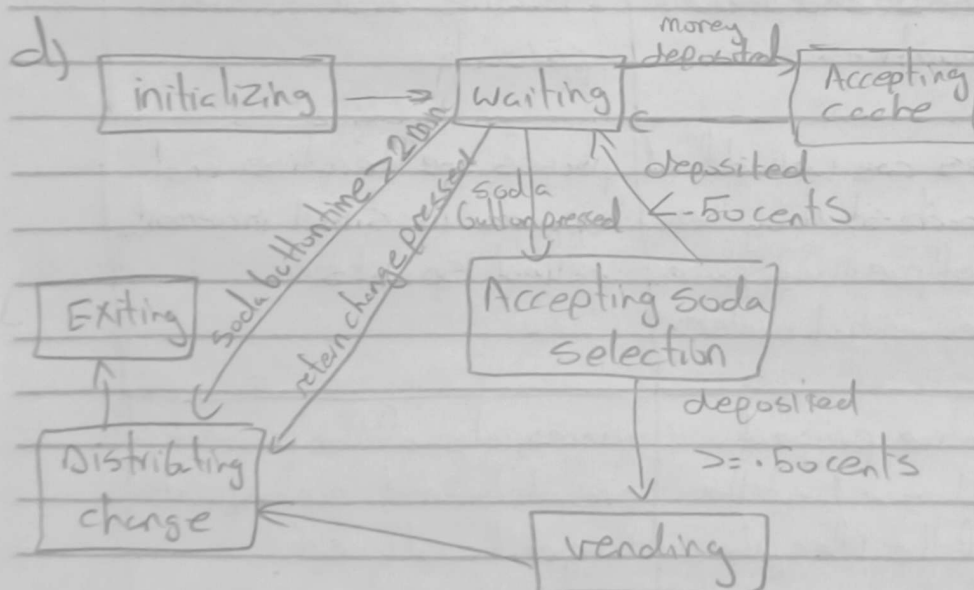 d)
initiclizing
waiting
money
deposited
Accepting
cache
soda button time > 2 min
retern change pressed
soda
button pressed
deposited
<.50 cents
Exiting
Accepting soda
selection
deposited
>= .50 cents
Distributing
change
vending